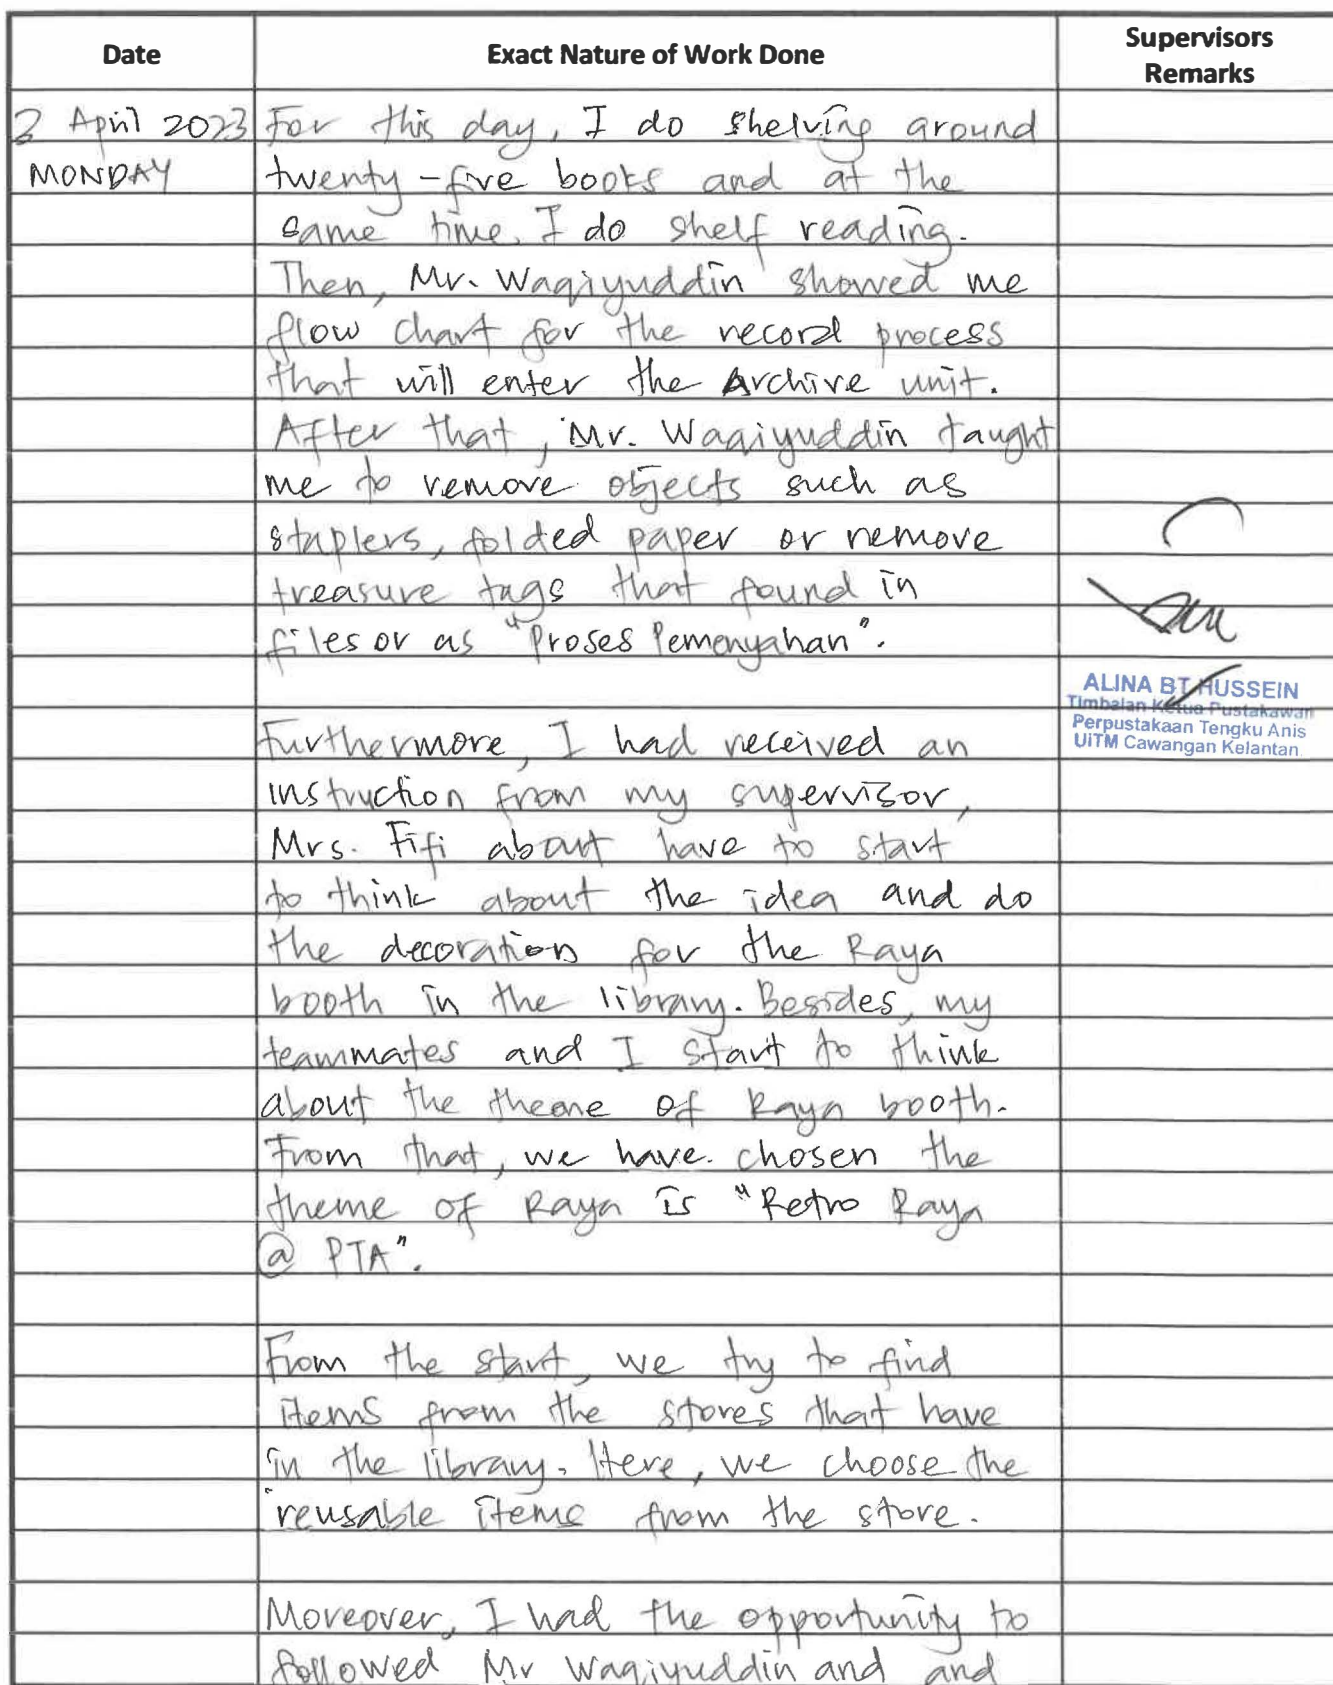 Date
Exact Nature of Work Done
Supervisors
Remarks
3 April 2023
MONDAY
For this day, I do shelving around
twenty-five books and at the
same time, I do shelf reading.
Then, Mr. Waqiyuddin showed me
flow chart for the record process
that will enter the Archive unit.
After that, Mr. Waqiyuddin taught
me to remove objects such as
staplers, folded paper or remove
treasure tags that found in
files or as "Proses Pemenyahan".
Furthermore, I had received an
instruction from my supervisor,
Mrs. Fifi about have to start
to think about the idea and do
the decoration for the Raya
booth in the library. Besides, my
teammates and I start to think
about the theme of Raya booth.
From that, we have chosen the
theme of Raya is "Retro Raya
@ PTA".
From the start, we try to find
items from the stores that have
in the library. Here, we choose the
reusable items from the store.
Moreover, I had the opportunity to
followed Mr Waqiyuddin and and
ALINA BT HUSSEIN
Timbalan Ketua Pustakawan
Perpustakaan Tengku Anis
UiTM Cawangan Kelantan